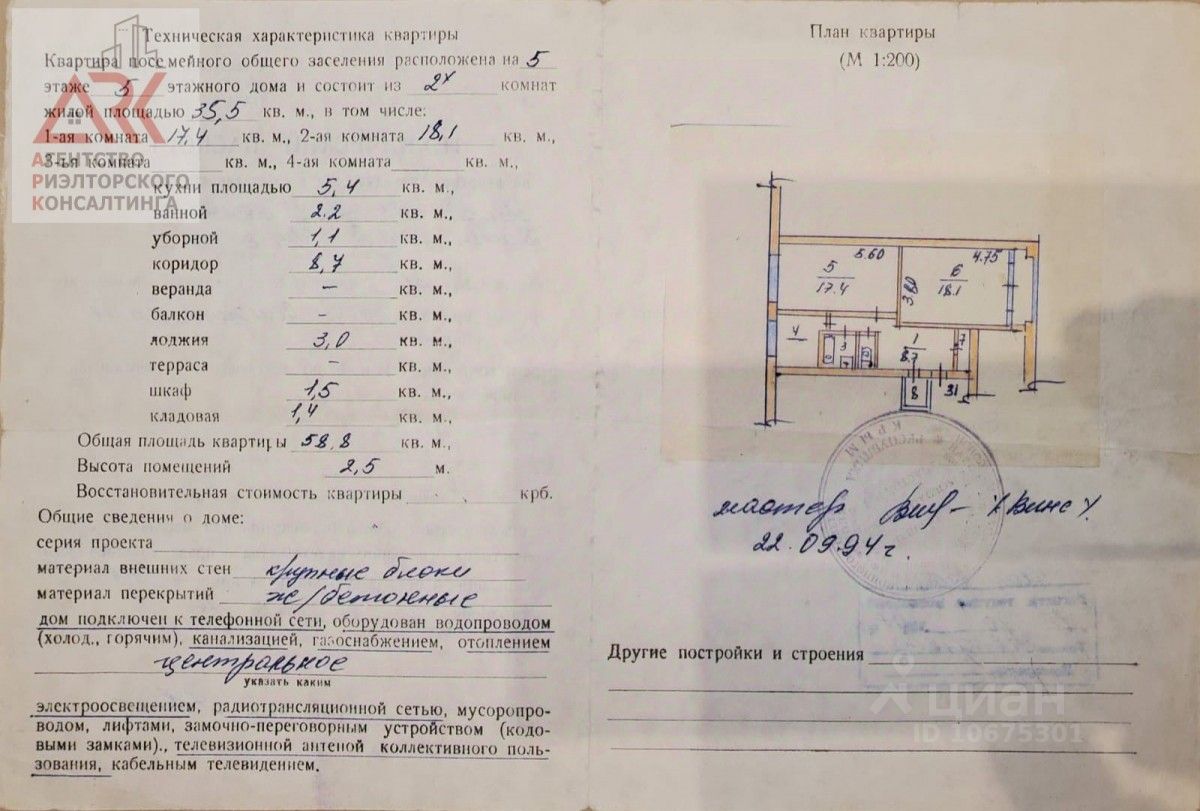 Техническая характеристика квартиры
Квартира посемейного общего заселения расположена на 5
этаже 5 этажного дома и состоит из 2х комнат
жилой площадью 35,5 кв. м., в том числе:
1-ая комната 17,4 кв. м., 2-ая комната 18,1 кв. м.,
3-ья комната кв. м., 4-ая комната кв. м.,
кухни площадью 5,4 кв. м.,
ванной 2.2 кв. м.,
уборной 1,1 кв. м.,
коридор 8,7 кв. м.,
веранда – кв. м.,
балкон - кв. м.,
лоджия 3,0 кв. м.,
терраса - кв. м.,
шкаф 1,5 кв. м.,
кладовая 1,4 кв. м.,
Общая площадь квартиры 58,8 кв. м.,
Высота помещений 2,5 м.
Восстановительная стоимость квартиры крб.
Общие сведения о доме:
серия проекта
материал внешних стен крупные блоки
материал перекрытий ж/бетонные
дом подключен к телефонной сети, оборудован водопроводом
(холод., горячим), канализацией, газоснабжением, отоплением
центральное
указать каким
электроосвещением, радиотрансляционной сетью, мусоропро-
водом, лифтами, замочно-переговорным устройством (кодо-
выми замками)., телевизионной антеной коллективного поль-
зования, кабельным телевидением.
ARK
АГЕНТСТВО
РИЭЛТОРСКОГО
КОНСАЛТИНГА
План квартиры
(М 1:200)
5.60
4.75
5
17.4
3.80
6
18.1
4
3
1
8.7
7
8
31
мастер
22.09.94г.
Другие постройки и строения
циан
ID 10675301